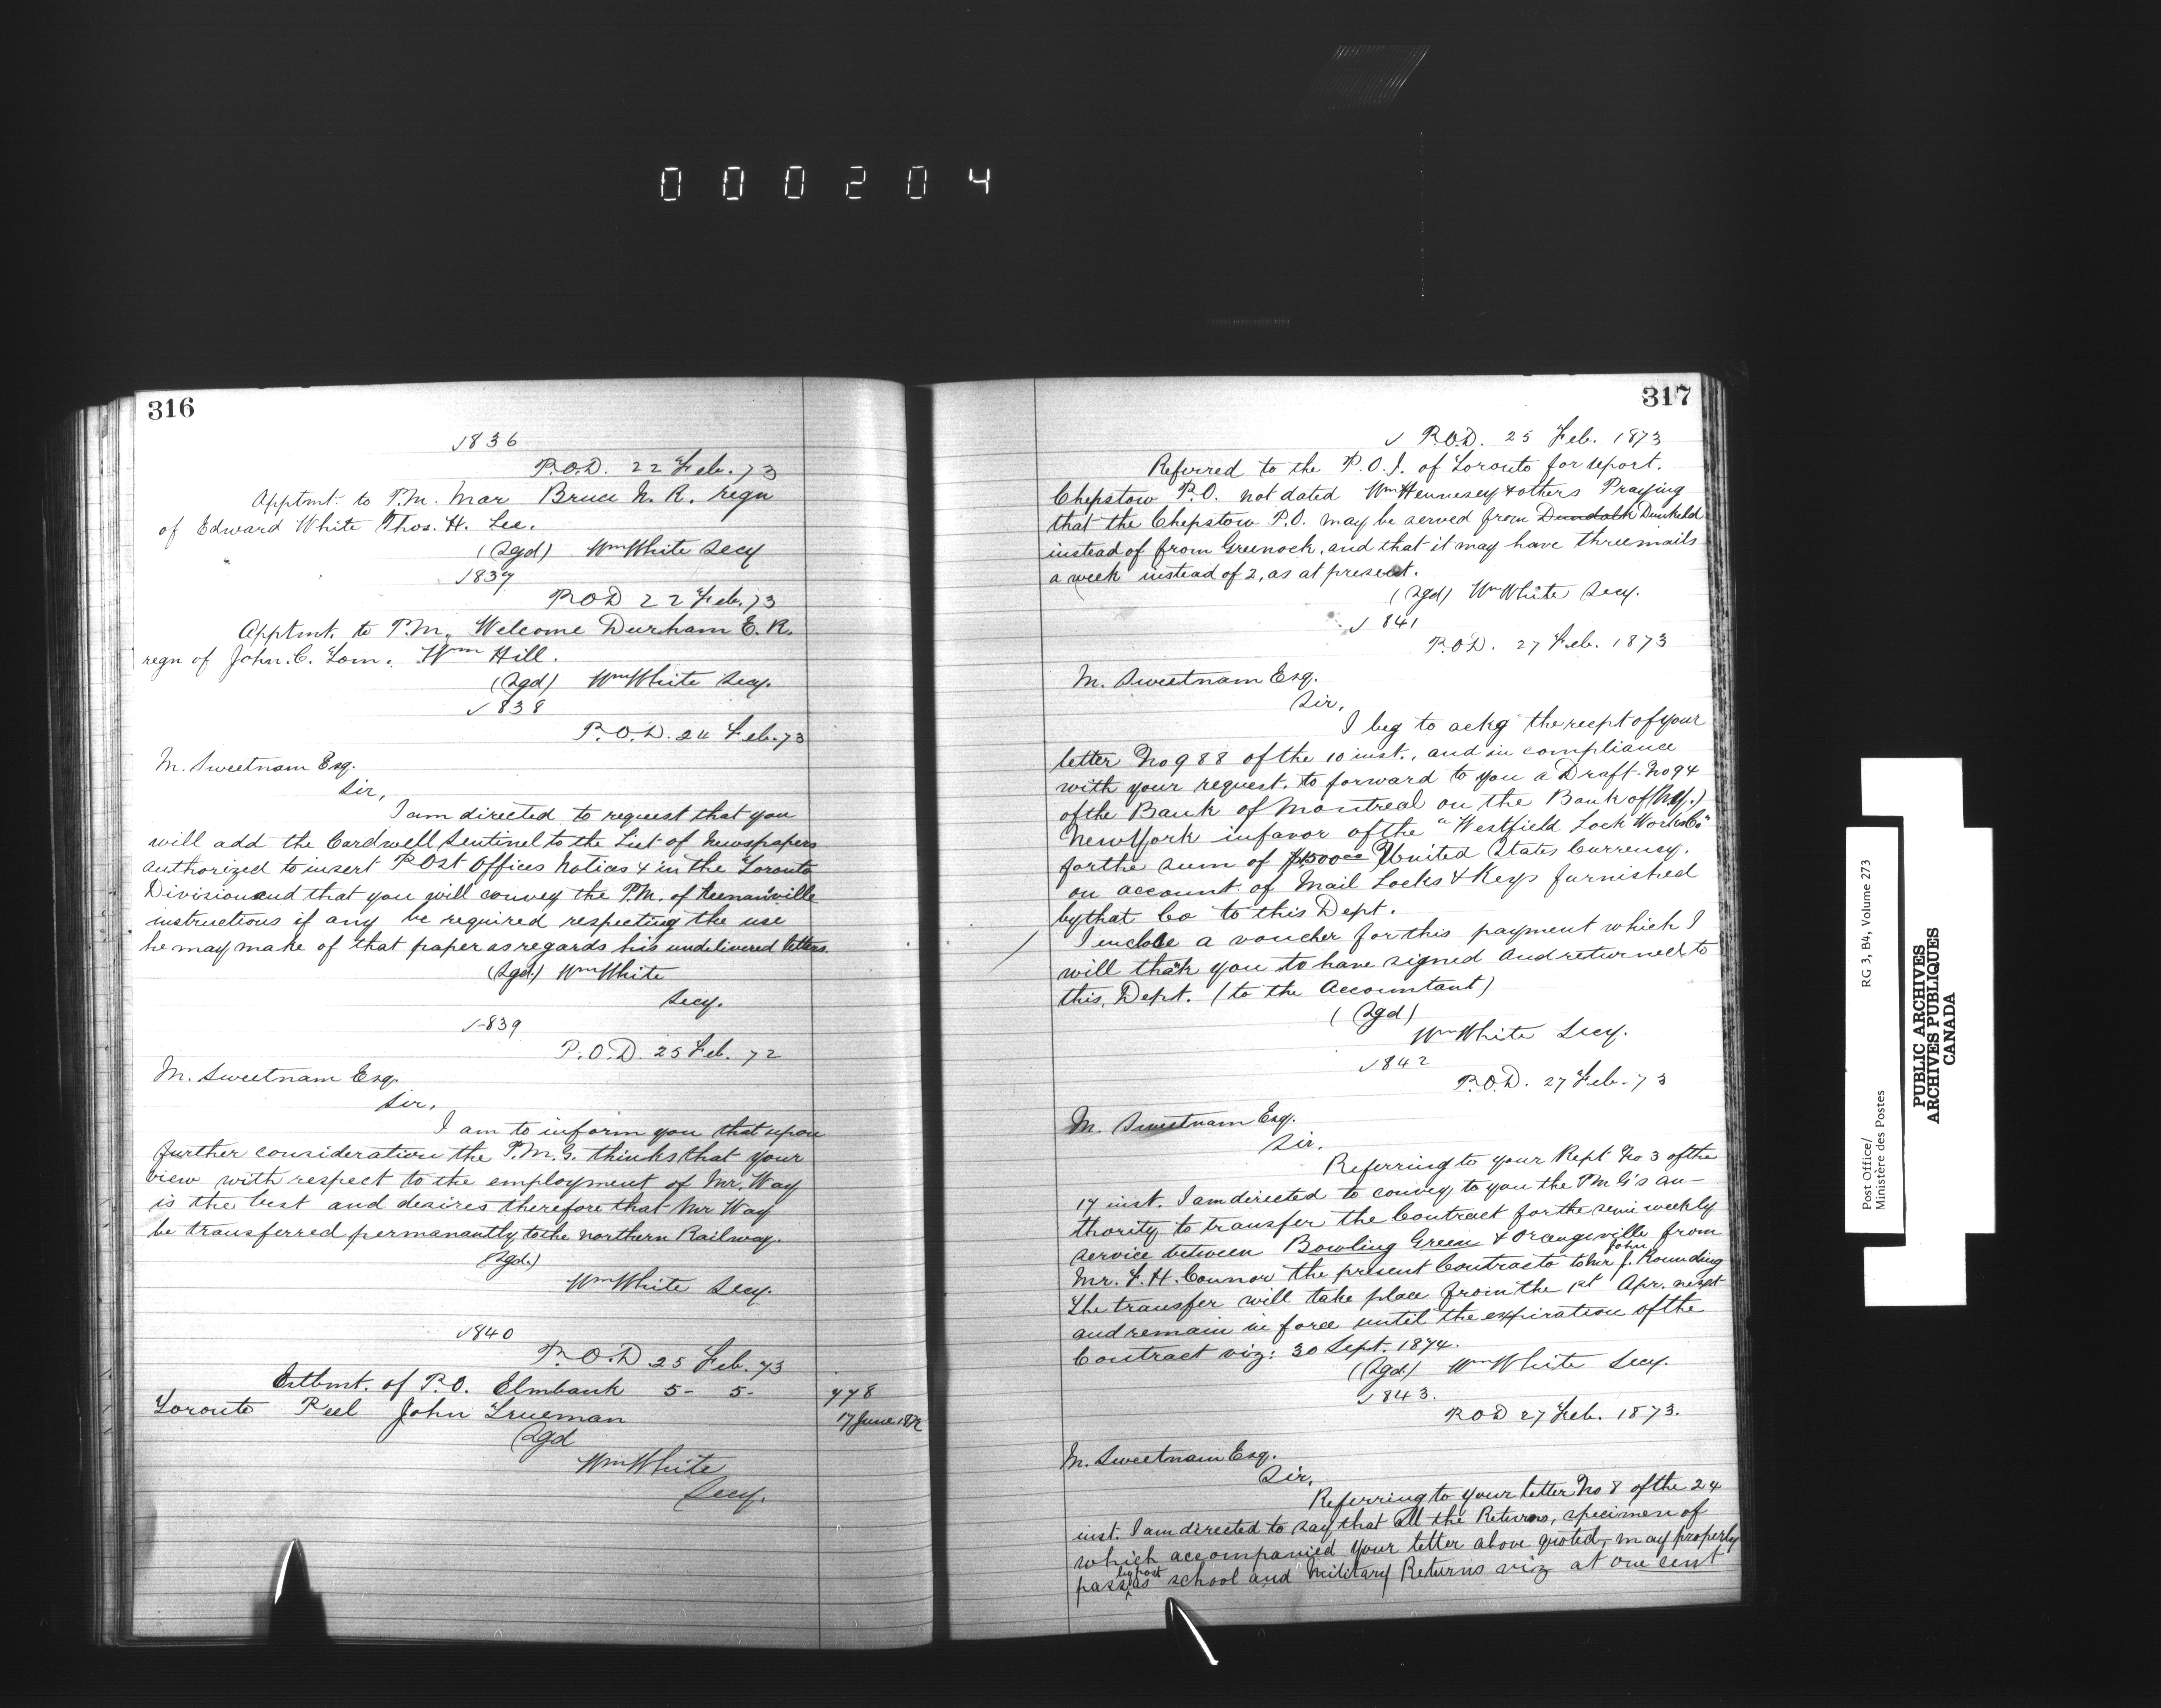 0 0 0 2 0 4
316
√836
P.O.D. 22 Feb. 73
Apptmt. to P.M. Mar Bruce N. R. regn
of Edward White Thos. H. Lee.
(Sgd) Wm White Secy
√837
P.O.D 22 Feb. 73
Apptmt. to P.M. Welcome Durham E. R.
regn of John. C. Tom. Wm Hill.
(Sgd) Wm White Secy.
√838
P.O.D. 24 Feb. 73
M. Sweetnam Esq.
Sir,
I am directed to request that you
will add the Cardwell Sentinel to the List of Newspapers
authorized to insert Post Offices Notices & in the Toronto
Division and that you will convey the P.M. of Keenansville
instructions if any be required respecting the use
he may make of that paper as regards his undelivered letters.
(Sgd.) Wm White
Secy.
√839
P.O.D. 25 Feb. 72
M. Sweetnam Esq.
Sir,
I am to inform you that upon
further consideration the P.M.G. thinks that your
view with respect to the employment of Mr. Way
is the best and desires therefore that Mr Way
be transferred permanantly to the Northern Railway.
(Sgd.)
Wm White Secy.
√840
P.O.D 25 Feb. 73
Estbmt. of P.O. Elmbank 5- 5- 778
Toronto Peel John Trueman 17 June 1872
(Sgd
Wm White
Secy.
317
√ P.O.D. 25 Feb. 1873
Referred to the P.O.I. of Toronto for report.
Chepstow P.O. not dated Wm Hennesey & others Praying
that the Chepstow P.O. may be served from Dundalk Dunkeld
instead of from Greenock, and that it may have three mails
a week instead of 2, as at present.
(Sgd) Wm White Secy.
√ 841
P.O.D. 27 Feb. 1873
M. Sweetnam Esq.
Sir,
I beg to ackg the recpt of your
letter No 988 of the 10 inst., and in compliance
with your request, to forward to you a Draft No 94
of the Bank of Montreal on the Bank of (N.Y.)
New York in favor of the "Westfield Lock Works Co"
for the sum of $1500 00 United States Currency.
on account of Mail Locks & Keys furnished
by that Co to this Dept.
I enclose a voucher for this payment which I
will thank you to have signed and returned to
this Dept. (to the Accountant)
(Sgd)
Wm White Secy.
√842
P.O.D. 27 Feb. 73
M. Sweetnam Esq.
Sir.
Referring to your Rept No 3 of the
17 inst. I am directed to convey to you the PMG's au-
thority to transfer the Contract for the semi weekly
service between Bowling Green & Orangeville from
Mr. F. H. Connor the present Contractor to Mr J. John Rounding
The transfer will take place from the 1st Apr. next
and remain in force until the expiration of the
Contract viz: 30 Sept. 1874.
(Sgd) Wm White Secy.
√843.
P.O.D 27 Feb. 1873.
M. Sweetnam Esq.
Sir,
Referring to your letter No 8 of the 24
inst. I am directed to say that all the Returns, specimen of
which accompanied your letter above quoted, may properly
pass by post as school and Military Returns viz at one cent
Post Office/
Ministère des Postes
RG 3, B4, Volume 273
PUBLIC ARCHIVES
ARCHIVES PUBLIQUES
CANADA